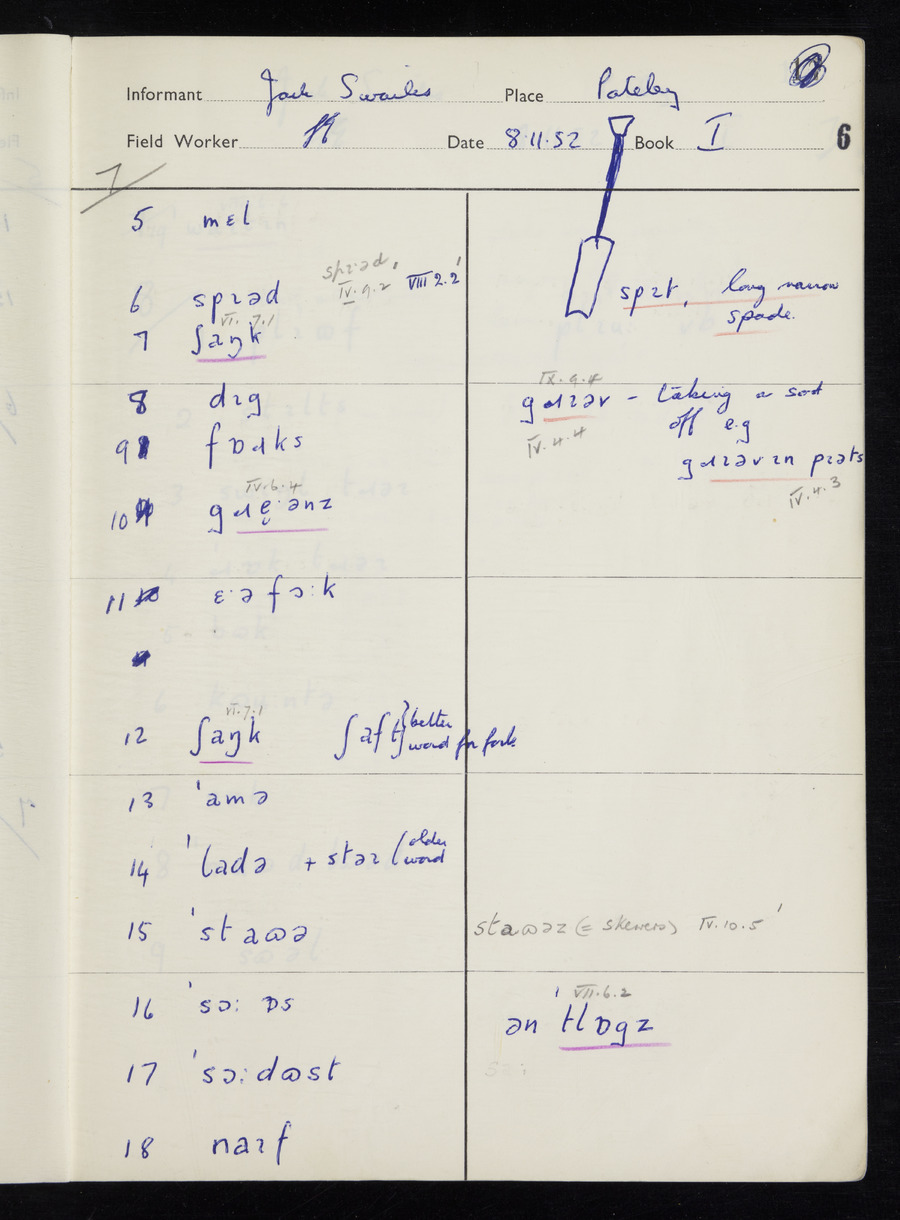 Informant Jack Swailes Place Pateley
Field Worker Date 8.11.52 Book I 6
7
5 mɛl
spɪəd, IV.9.2 VIII 2.2'
6 spɪəd
VI.7.1
7 ʃaŋk
spɪt, long narrow
spade.
8 dɪg
IX.9.4
gɹɪəv – taking a sod
off e.g
IV.4.4
gɹɪəvɪn pɪəts
IV.4.3
9 fɒɹks
IV.6.4
10 gɹẹ·ənz
11 ɛ·əfɔ:k
VI.7.1
12 ʃaŋk ʃaft} better
word for fork
13 'amə
14 'ladə + stəɪ (older
word
15 'staɷə staɷəz (= skewers) IV.10.5'
16 'sɔ: ɒs
VII.6.2
ən 'tlɒgz
17 'sɔ:dɷst
sɔ:
18 naɪf